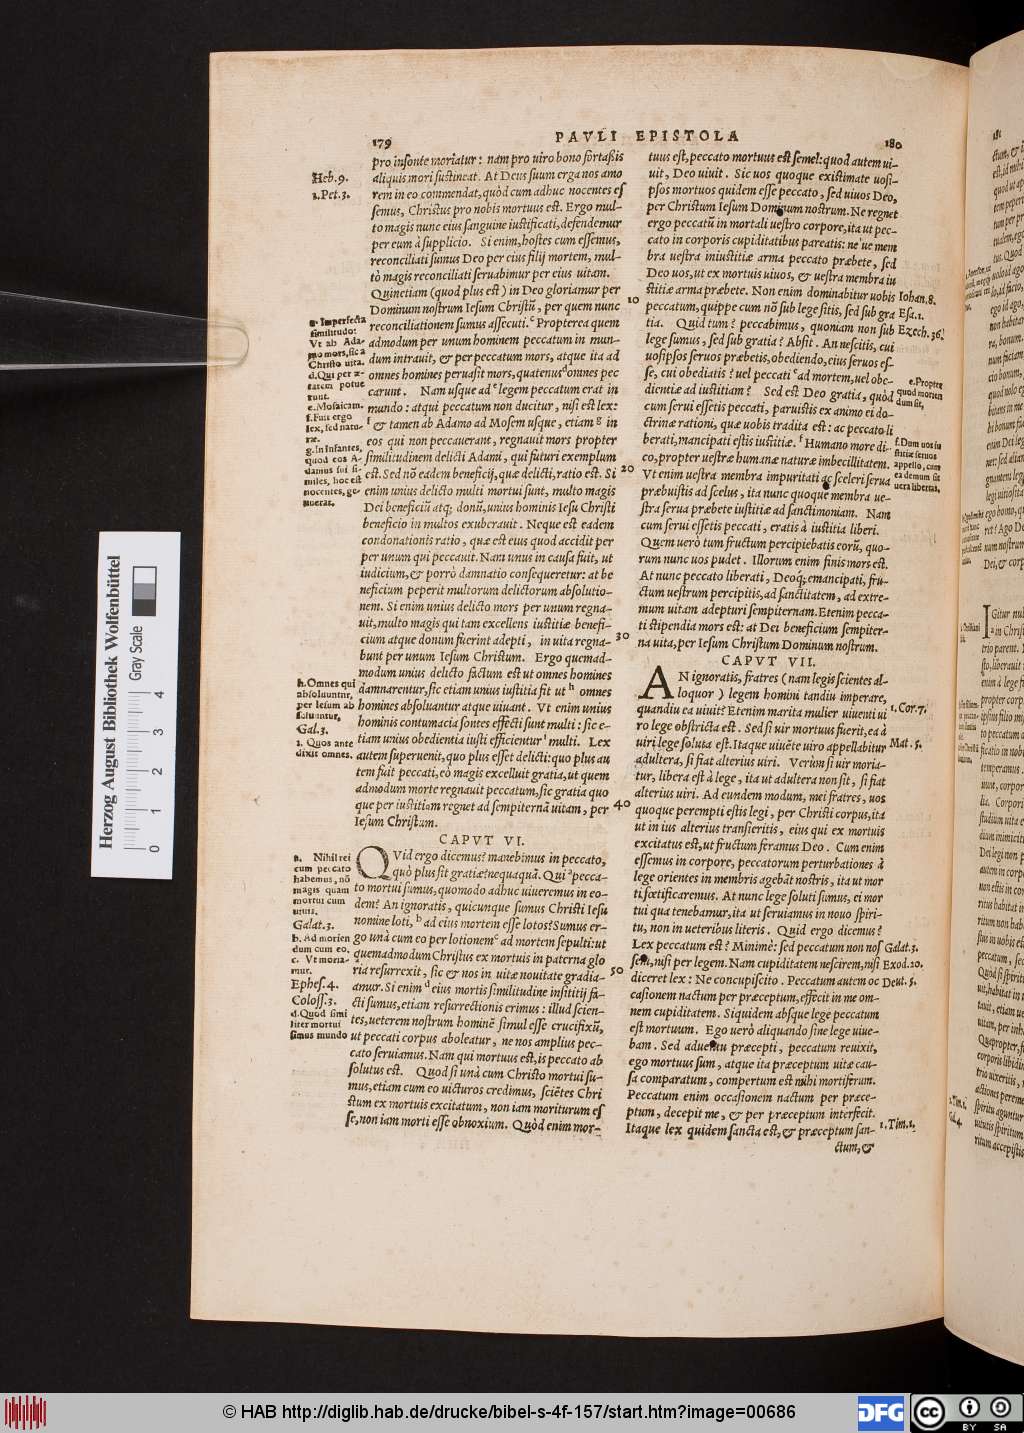 179
PAVLI EPISTOLA
180
pro insonte moriatur: nam pro uiro bono fortaßis
aliquis mori sustineat. At Deus suum erga nos amo
rem in eo commendat, quòd cum adhuc nocentes es
semus, Christus pro nobis mortuus est. Ergo mul-
to magis nunc eius sanguine iustificati, defendemur
per eum à supplicio. Si enim, hostes cum essemus,
reconciliati sumus Deo per eius filij mortem, mul-
tò magis reconciliati seruabimur per eius uitam.
Quinetiam (quod plus est) in Deo gloriamur per
Dominum nostrum Iesum Christũ, per quem nunc
reconciliationem sumus assecuti. c Propterea quem
admodum per unum hominem peccatum in mun-
dum intrauit, & per peccatum mors, atque ita ad
omnes homines peruasit mors, quatenus d omnes pec
carunt. Nam usque ad e legem peccatum erat in
mundo: atqui peccatum non ducitur, nisi est lex:
f & tamen ab Adamo ad Mosem usque, etiam g in
eos qui non peccauerant, regnauit mors propter
similitudinem delicti Adami, qui futuri exemplum
est. Sed nõ eadem beneficij, quæ delicti, ratio est. Si
enim unius delicto multi mortui sunt, multo magis
Dei beneficiũ atq; donũ, unius hominis Iesu Christi
beneficio in multos exuberauit. Neque est eadem
condonationis ratio, quæ est eius quod accidit per
per unum qui peccauit. Nam unus in causa fuit, ut
iudicium, & porrò damnatio consequeretur: at be
neficium peperit multorum delictorum absolutio-
nem. Si enim unius delicto mors per unum regna-
uit, multo magis qui tam excellens iustitiæ benefi-
cium atque donum fuerint adepti, in uita regna-
bunt per unum Iesum Christum. Ergo quemad-
modum unius delicto factum est ut omnes homines
damnarentur, sic etiam unius iustitia fit ut h omnes
homines absoluantur atque uiuant. Vt enim unius
hominis contumacia sontes effecti sunt multi: sic e-
tiam unius obedientia iusti efficientur i multi. Lex
autem superuenit, quo plus esset delicti: quo plus au
tem fuit peccati, eò magis excelluit gratia, ut quem
admodum morte regnauit peccatum, sic gratia quo
que per iustitiam regnet ad sempiternã uitam, per
Iesum Christum.
CAPVT VI.
QVid ergo dicemus? manebimus in peccato,
quò plus sit gratiæ? nequaquã. Qui a pecca-
to mortui sumus, quomodo adhuc uiueremus in eo-
dem? An ignoratis, quicunque sumus Christi Iesu
nomine loti, b ad eius mortem esse lotos? Sumus er-
go unà cum eo per lotionem c ad mortem sepulti: ut
quemadmodum Christus ex mortuis in paterna glo
ria resurrexit, sic & nos in uitæ nouitate gradia-
amur. Si enim d eius mortis similitudine insititij fa-
cti sumus, etiam resurrectionis erimus: illud scien-
tes, ueterem nostrum hominẽ simul esse crucifixũ,
ut peccati corpus aboleatur, ne nos amplius pec-
cato seruiamus. Nam qui mortuus est, is peccato ab
solutus est. Quod si unà cum Christo mortui su-
mus, etiam cum eo uicturos credimus, sciẽtes Chri
stum ex mortuis excitatum, non iam moriturum es
se, non iam morti esse obnoxium. Quòd enim mor-
Heb. 9.
1. Pet. 3.
c. Imperfecta
similitudo:
Vt ab Ada-
mo mors, sic a
Christo uita.
d. Qui per æ-
tatem potue
runt.
e. Mosaicam.
f. Fuit ergo
lex, sed natu-
ræ.
g. In infantes,
quod eos A-
damus sui si-
miles, hoc est
nocentes, ge-
nuerat.
h. Omnes qui
absoluuntur,
per Iesum ab
soluuntur,
Gal. 3.
i. Quos ante
dixit omnes.
a. Nihil rei
cum peccato
habemus, nõ
magis quam
mortui cum
uiuis.
Galat. 3.
b. Ad morien
dum cum eo.
c. Vt moria-
mur.
Ephes. 4.
Coloss. 3.
d. Quod simi
liter mortui
simus mundo
10
20
30
40
50
tuus est, peccato mortuus est semel: quod autem ui-
uit, Deo uiuit. Sic uos quoque existimate uosi-
psos mortuos quidem esse peccato, sed uiuos Deo,
per Christum Iesum Dominum nostrum. Ne regnet
ergo peccatũ in mortali uestro corpore, ita ut pec-
cato in corporis cupiditatibus pareatis: ne ue mem
bra uestra iniustitiæ arma peccato præbete, sed
Deo uos, ut ex mortuis uiuos, & uestra membra iu
stitiæ arma præbete. Non enim dominabitur uobis
peccatum, quippe cum nõ sub lege sitis, sed sub gra
tia. Quid tum? peccabimus, quoniam non sub
lege sumus, sed sub gratia? Absit. An nescitis, cui
uosipsos seruos præbetis, obediendo, eius seruos es-
se, cui obediatis? uel peccati e ad mortem, uel obe-
dientiæ ad iustitiam? Sed est Deo gratia, quòd
cum serui essetis peccati, paruistis ex animo ei do-
ctrinæ rationi, quæ uobis tradita est: ac peccato li
berati, mancipati estis iustitiæ. f Humano more di-
co, propter uestræ humanæ naturæ imbecillitatem.
Vt enim uestra membra impuritati ac sceleri serua
præbuistis ad scelus, ita nunc quoque membra ue-
stra serua præbete iustitiæ ad sanctimoniam. Nam
cum serui essetis peccati, eratis à iustitia liberi.
Quem uerò tum fructum percipiebatis eorũ, quo-
rum nunc uos pudet. Illorum enim finis mors est.
At nunc peccato liberati, Deoq; emancipati, fru-
ctum uestrum percipitis, ad sanctitatem, ad extre-
mum uitam adepturi sempiternam. Etenim pecca-
ti stipendia mors est: at Dei beneficium sempiter-
na uita, per Iesum Christum Dominum nostrum.
CAPVT VII.
AN ignoratis, fratres (nam legis scientes al-
loquor) legem homini tandiu imperare,
quandiu ea uiuit? Etenim marita mulier uiuenti ui
ro lege obstricta est. Sed si uir mortuus fuerit, ea à
uiri lege soluta est. Itaque uiuẽte uiro appellabitur
adultera, si fiat alterius uiri. Verùm si uir moria-
tur, libera est à lege, ita ut adultera non sit, si fiat
alterius uiri. Ad eundem modum, mei fratres, uos
quoque perempti estis legi, per Christi corpus, ita
ut in ius alterius transieritis, eius qui ex mortuis
excitatus est, ut fructum feramus Deo. Cum enim
essemus in corpore, peccatorum perturbationes à
lege orientes in membris agebãt nostris, ita ut mor
ti fœtificaremus. At nunc lege soluti sumus, ei mor
tui qua tenebamur, ita ut seruiamus in nouo spiri-
tu, non in ueteribus literis. Quid ergo dicemus?
Lex peccatum est? Minimè: sed peccatum non nos
sem, nisi per legem. Nam cupiditatem nescirem, nisi
diceret lex: Ne concupiscito. Peccatum autem oc
casionem nactum per præceptum, effecit in me om-
nem cupiditatem. Siquidem absque lege peccatum
est mortuum. Ego uerò aliquando sine lege uiue-
bam. Sed aduentu præcepti, peccatum reuixit,
ego mortuus sum, atque ita præceptum uitæ cau-
sa comparatum, compertum est mihi mortiferum.
Peccatum enim occasionem nactum per præce-
ptum, decepit me, & per præceptum interfecit.
Itaque lex quidem sancta est, & præceptum san-
ctum, &
Iohan. 8.
Esa. 1.
Ezech. 36.
e. Propter
quod morien
dum sit,
f. Dum uos iu
stitiæ seruos
appello, cum
ea demum sit
uera libertas.
1. Cor. 7.
Mat. 5.
Galat. 3.
Exod. 20.
Deut. 5.
1. Tim. 1.
Herzog August Bibliothek Wolfenbüttel
Gray Scale
0 1 2 3 4
© HAB http://diglib.hab.de/drucke/bibel-s-4f-157/start.htm?image=00686
DFG
cc
BY SA